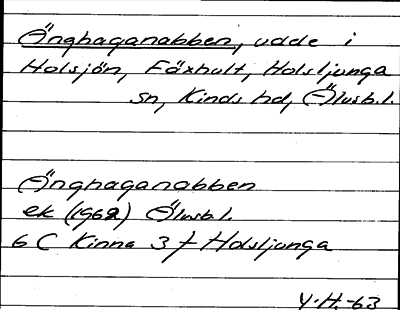 Änghaganabben, udde i
Holsjön, Fäxhult, Holsljunga
sn, Kinds hd, Älvsb.l.
Änghaganabben
ek (1962) Älvsb.l.
6 C Kinna 3 f Holsljunga
Y.H.-63